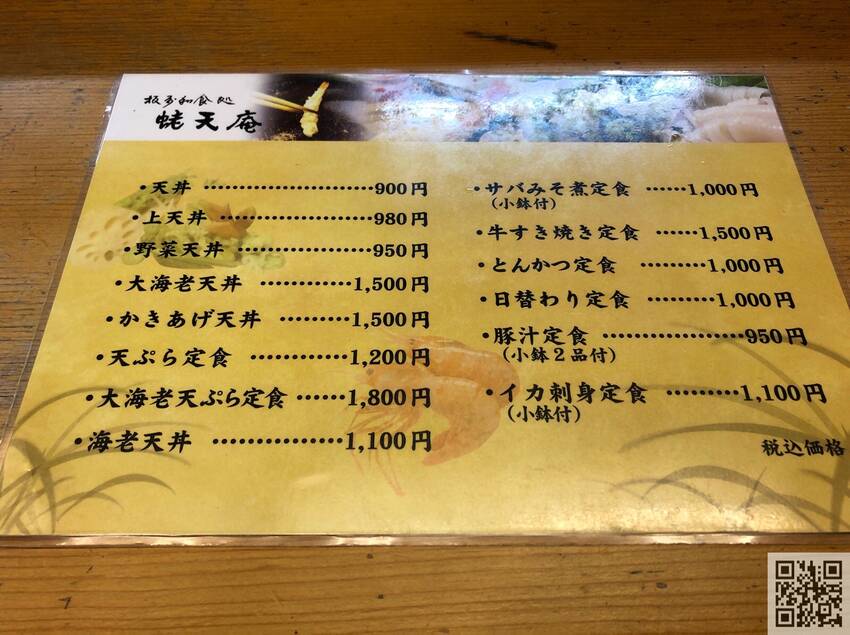 板前和食処
蛯天庵
・天丼 ……………………900円
・上天丼 …………………980円
・野菜天丼 ………………950円
・大海老天丼 …………1,500円
・かきあげ天丼 ………1,500円
・天ぷら定食 …………1,200円
・大海老天ぷら定食 ……1,800円
・海老天丼 ……………1,100円
・サバみそ煮定食 ……1,000円
(小鉢付)
・牛すき焼き定食 ……1,500円
・とんかつ定食 ………1,000円
・日替わり定食 ………1,000円
・豚汁定食 ………………950円
(小鉢2品付)
・イカ刺身定食 ………1,100円
(小鉢付)
税込価格